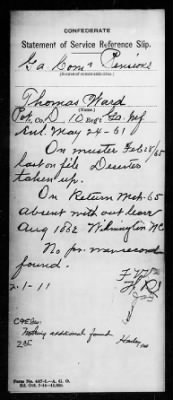 CONFEDERATE
Statement of Service Reference Slip.
Ga Comr Pensions
Thomas Ward
(Name.)
Pvt. Co. D 10 Reg't Ga. Inf
Enl May 24-61
On muster Feb 28/65
last on file Deserter
taken up.
On Return Mch-65
absent without leave
Aug 1862 Wilmington NC
No pr. war record
found.
2-1-11
Nothing additional found
Form No. 457-1.—A. G. O.